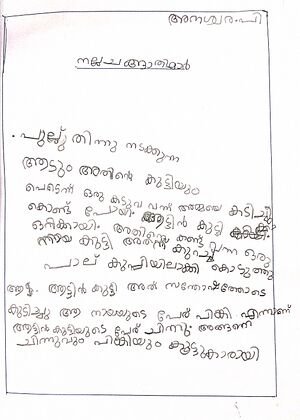 അനശ്വര.പി
നല്ലചങ്ങാതിമാർ
. പുല്ലു തിന്നു നടക്കുന്ന
ആടും അതിന്റെ കുട്ടിയും
പെട്ടെന്ന് ഒരു കടുവ വന്ന് അമ്മയെ കടിച്ചു
കൊണ്ട് പോയി. ആട്ടിൻ കുട്ടി
ഒറ്റക്കായി. അതിനെ കണ്ട് വന്ന ഒരു
നായ കുട്ടി അതിന് കുറച്ച്
പാല് കുപ്പിയിലാക്കി കൊടുത്തു
ആട്ടിൻ കുട്ടി അത് സന്തോഷത്തോടെ
കുടിച്ചു ആ നായയുടെ പേര് പിങ്കി എന്നാണ്
ആട്ടിൻകുട്ടിയുടെ പേര് ചിന്നു. അങ്ങനെ
ചിന്നുവും പിങ്കിയും കൂട്ടുകാരായി